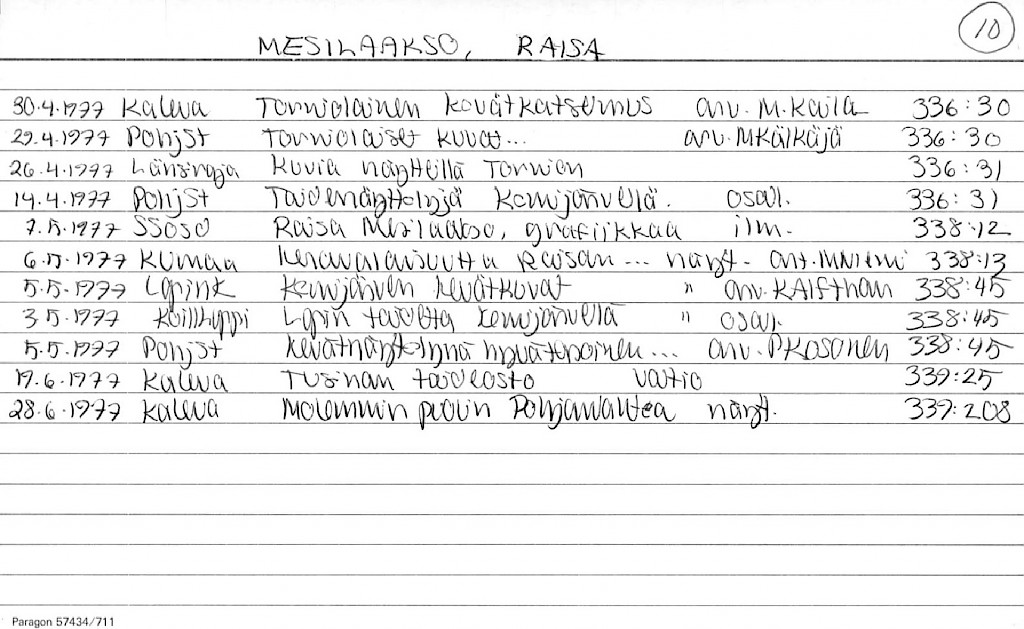 10
MESILAAKSO, RAISA
30.4.1977 Kaleva Torniolainen kevätkatselmus arv. M.Kaila 336:30
29.4.1977 Pohjst Torniolaiset kuvat... arv. MKälkäjä 336:30
26.4.1977 Länsipohja Kuvia näytteillä Tornion 336:31
14.4.1977 Pohjst Taidenäyttelyjä Kemijärvellä. osal. 336:31
7.5.1977 SSoso Raisa Mesilaakso, grafiikkaa ilm. 338:12
6.5.1977 KUmaa Keravalaisuutta Raisan... näyt. art. MNiemi 338:13
5.5.1977 Lapink Kemijärven kevätkuvat " arv. KAlfthan 338:45
3.5.1977 Koillappi Lapin taidetta Kemijärvellä " osal. 338:45
5.5.1977 Pohjst Kevätnäyttelynä hyvätasoinen... arv. PKosonen 338:45
19.6.1977 Kaleva Tusinan taideosto valtio 339:25
28.6.1977 Kaleva Molemmin puolin Pohjanlahtea näyt. 339:208
Paragon 57434/711